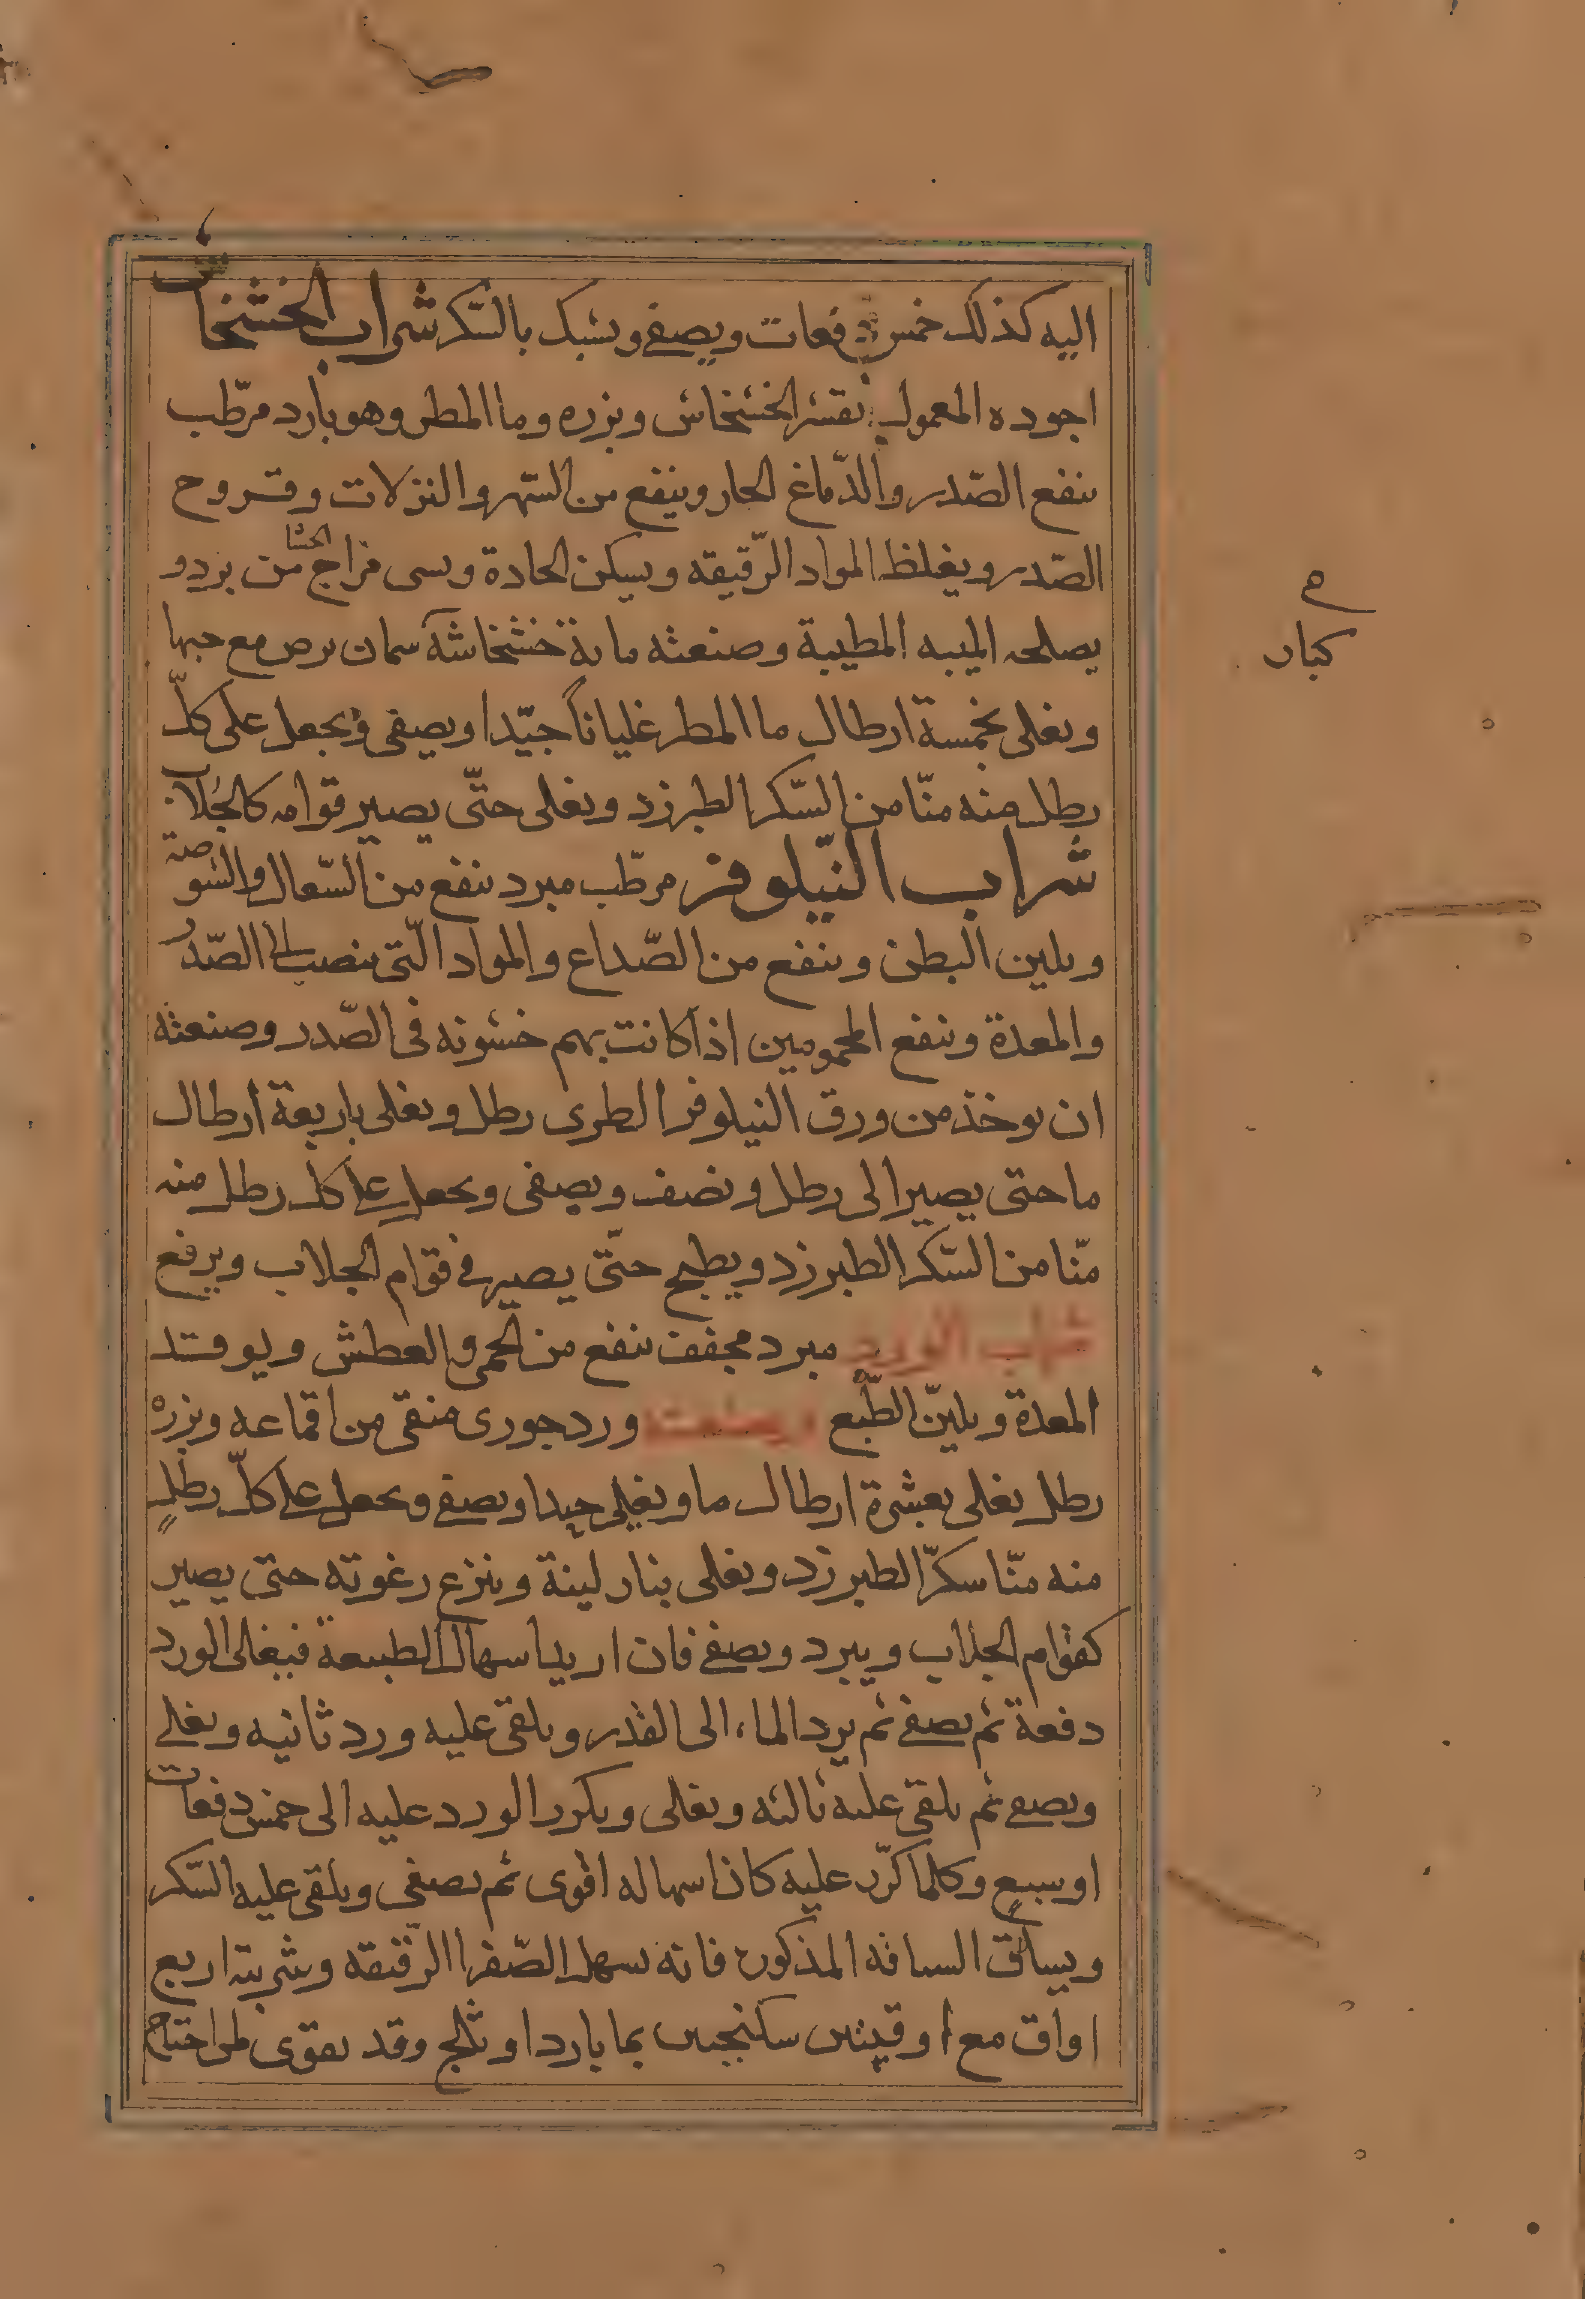 اليه كذلك خمس دفعات ويصفى ويشبك بالسّكر شراب الخشخاش
اجوده المعمول بقشر الخشخاش وبزره وما المطر وهو بارد مرطّب
ينفع الصّدر والدّماغ الحار وينفع من السّهر والنزلات وقروح
الصّدر ويغلظ المواد الرّقيقه ويسكن الحادة وسى مزاج الحشا من برد و
يصلحه الميبه المطيبة وصنعته ماية خشخاشة سمان يرض مع حبها
ويغلى بخمسة ارطال ما المطر غلياناً جيّدا ويصفى ويجعل على كلّ
رطل منه منّا من السّكر الطبرزد ويغلى حتّى يصير قوامه كالجُلاب
شراب النّيلوفر مرطّب مبرد ينفع من السّعال والشوصة
ويلين البطن وينفع من الصّداع والمواد الّتى ينصب الى الصّدر
والمعدة وينفع المحمومين اذا كانت بهم خشونه فى الصّدر وصنعته
ان يوخذ من ورق النيلوفر الطرى رطل ويغلى باربعة ارطال
ما حتى يصير الى رطل ونصف ويصفى ويجعل على كل رطل منه
منّا من السّكر الطبرزد ويطبخ حتّى يصير فى قوام الجلاب ويرفع
شراب الورد مبرد مجفف ينفع من الحمى والعطش ويو قد
المعدة ويليّن الطّبع وصنعته ورد جورى منقى من اقماعه وبزره
رطل يغلى بعشرة ارطال ما ويغلى جيدا ويصفى ويجعل على كلّ رطلٍ
منه منّا سكرّ الطبرزد ويغلى بنار لينة وينزع رغوته حتى يصير
كقوام الجلاب ويبرد ويصفى فان اريد اسهال الطبيعة فيغلى الورد
دفعة ثم يصفى ثم يرد الماء الى القدر ويلقى عليه ورد ثانيه ويغلى
ويصفى ثم يلقى عليه ثالثه ويغلى ويكرر الورد عليه الى خمس دفعات
او سبعٍ وكلما كرّر عليه كان اسهاله اقوى ثم يصفى ويلقى عليه السّكر
ويساق السياقه المذكور فانه يسهل الصّفرا الرّقيقه وشربته اربع
اواق مع اوقيتين سكنجبين بما بارد او ثلج وقد يقوى لمن احتاج
م
كبار